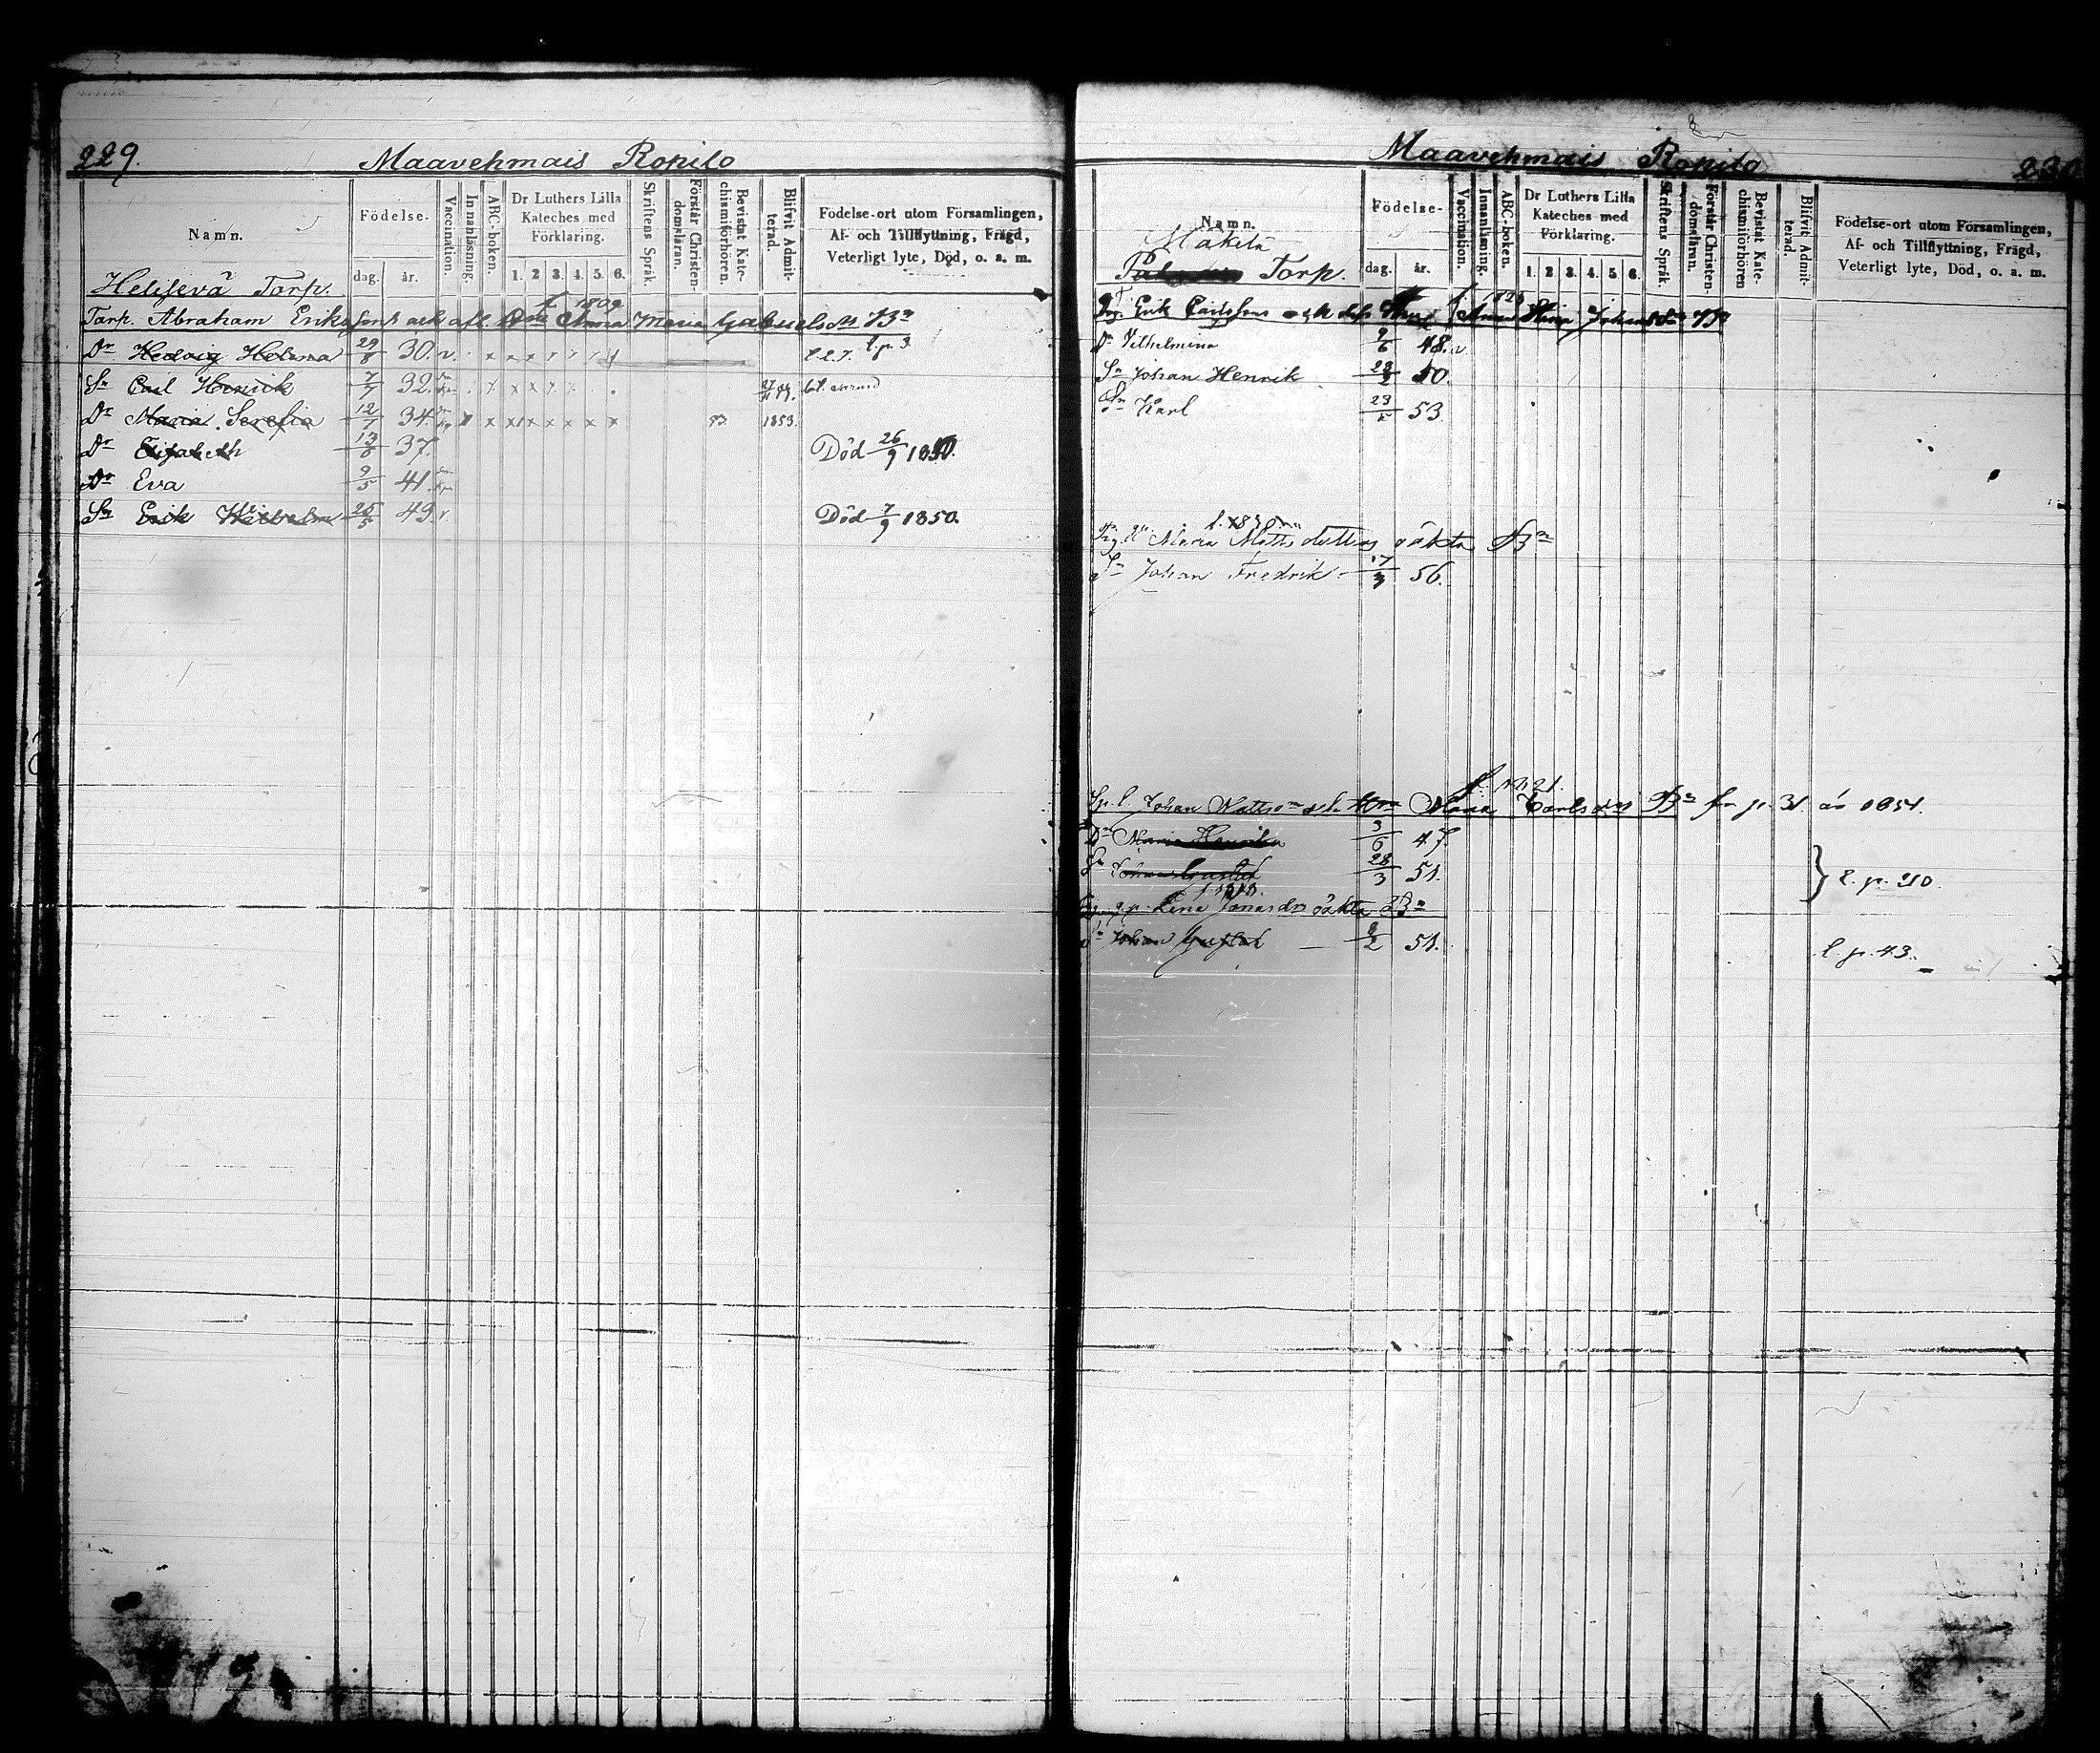 229.
Maavehmais Ropilo
Namn.
Födelse-
dag.
år.
Vaccination.
Innanläsning.
ABC-boken.
Dr Luthers Lilla
Kateches med
Förklaring.
1. 2 3. 4. 5. 6.
Skriftens Språk.
Förstår Christen-
domsläran.
Bevistat Kate-
chismiförhören.
Blifvit Admit-
terad.
Födelse-ort utom Församlingen,
Af- och Tillflyttning, Frägd,
Veterligt lyte, Död, o. a. m.
Helisevä Torp.
f. 1809
Torp. Abraham Eriksons och afl. Anna Maria Gabrielsdrs Bn
Dr Hedvig Helena 29/8 30. v. l.p. 3
Sn Carl Henrik 7/7 32.
Dr Maria Serefia 12/7 34. 53. 1853.
Dr Elisabeth 13/6 37. Död 26/9 1850.
Dr Eva 9/5 41.
Sn Erik Wilhelm 25/5 49. v. Död 7/9 1850.
Maavehmais Ropilo
230.
Namn.
Födelse-
dag.
år.
Vaccination.
Innanläsning.
ABC-boken.
Dr Luthers Lilla
Kateches med
Förklaring.
1. 2 3. 4. 5. 6.
Skriftens Språk.
Förstår Christen-
domsläran.
Bevistat Kate-
chismiförhören
Blifvit Admit-
terad.
Födelse-ort utom Församlingen,
Af- och Tillflyttning, Frägd,
Veterligt lyte, Död, o. a. m.
Mäkelä
Torp.
Erik Carlssons och dess Hus Anna Stina Johansdrs Bn
Dr Vilhelmina 9/6 48. v.
Sn Johan Henrik 50.
Sn Karl 23/5 53.
f. 1830
Pig. Maria Matts dotters oäkta Bn
Sn Johan Fredrik 17/3 56.
f. 1821.
Johan Mattsons och Hus Maria Carlsdrs Bn fr p. 31 år 1851.
Dr Maria Henrika 3/6 47.
Sn Johan Gustaf 28/3 51. } l. p. 210.
Lena Jonasdrs oäkta Bn
Sn Johan Gustaf 9/2 51. l. p. 43.